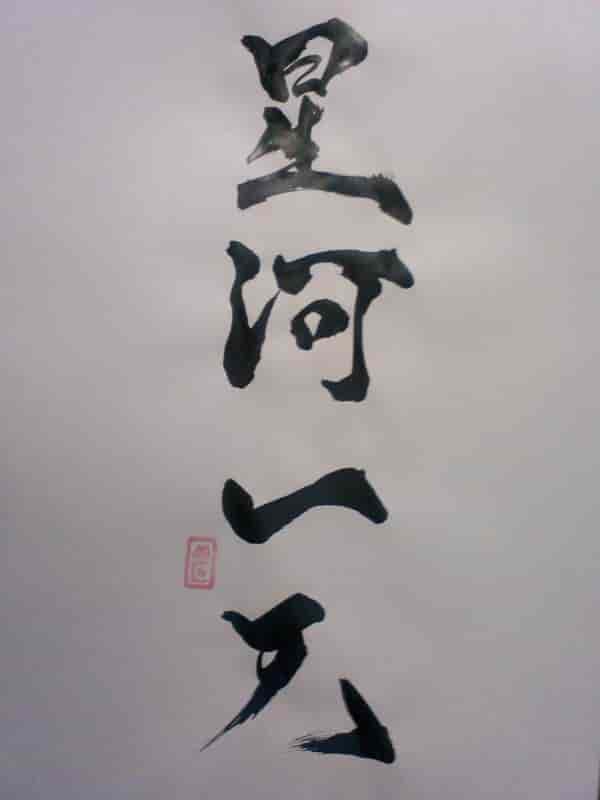 星河一天